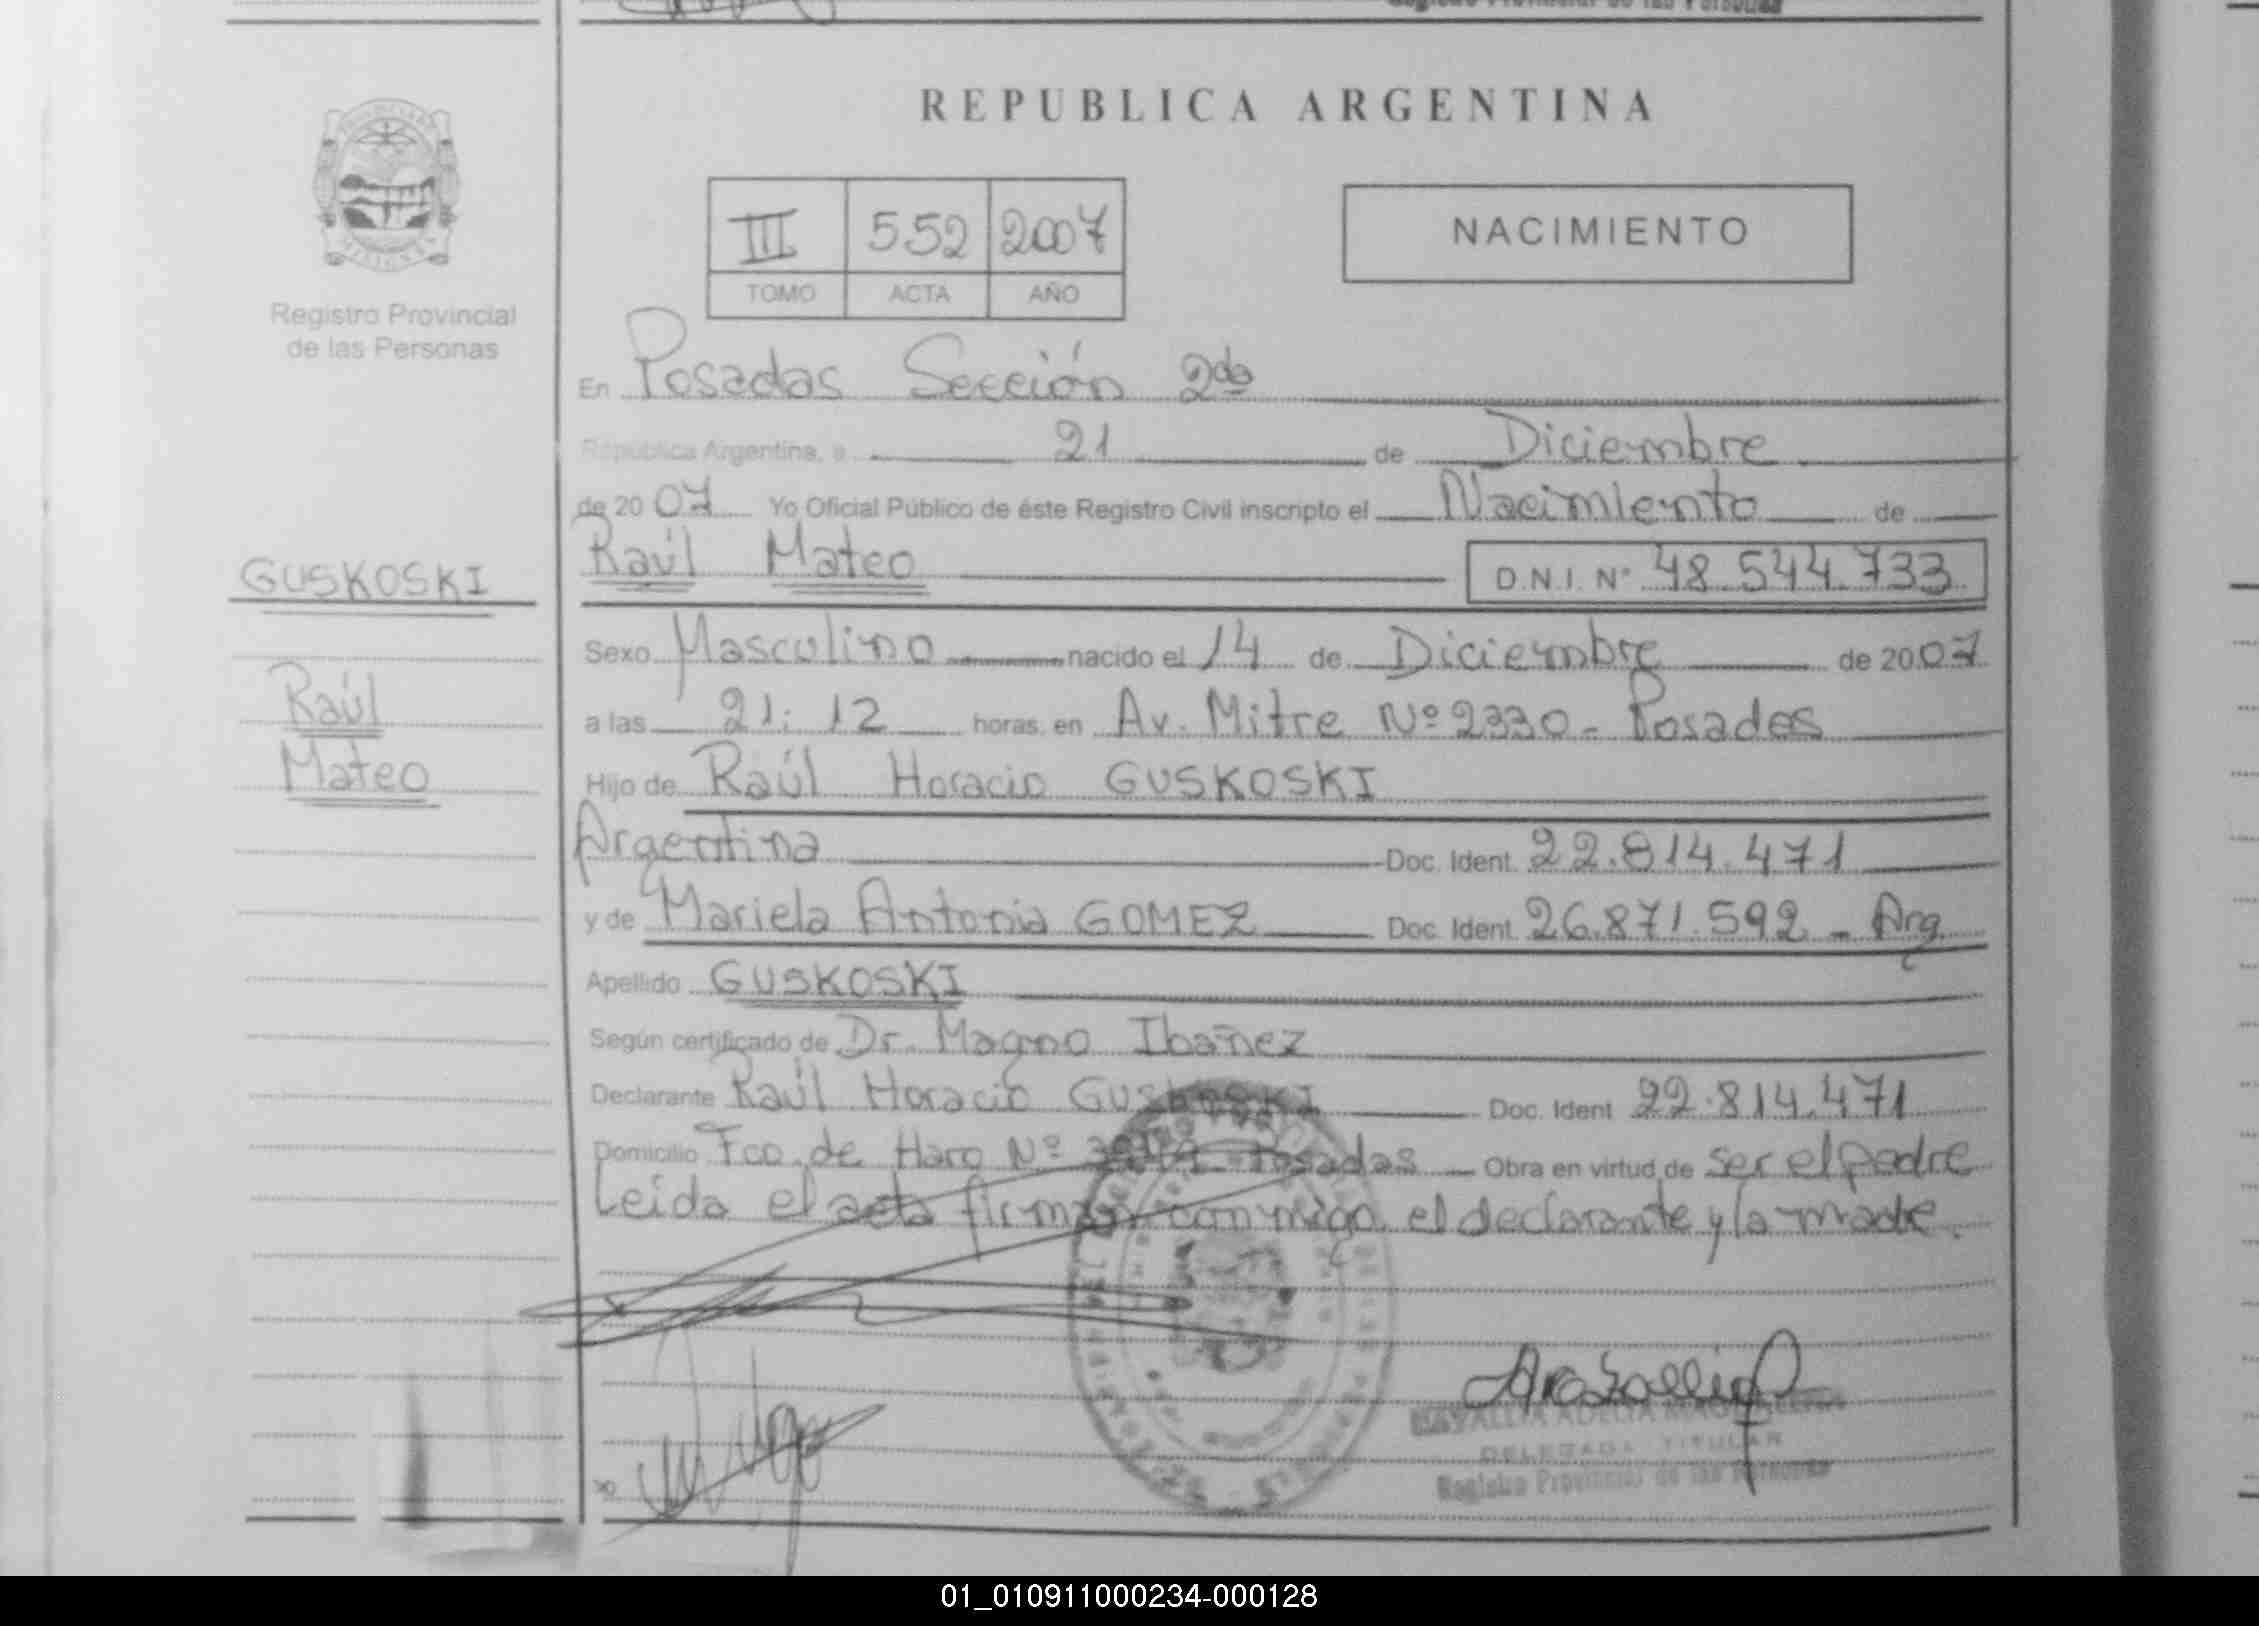 Registro Provincial de las Personas
REPUBLICA ARGENTINA
III 552 2007
TOMO ACTA AÑO
NACIMIENTO
Registro Provincial
de las Personas
En Posadas Sección 2da
República Argentina, a 21 de Diciembre
de 2007 Yo Oficial Público de éste Registro Civil inscripto el Nacimiento de
Raúl Mateo D.N.I. Nº 48.544.733
GUSKOSKI
Raúl
Mateo
Sexo Masculino nacido el 14 de Diciembre de 2007
a las 21:12 horas. en Av. Mitre Nº 2330 - Posadas
Hijo de Raúl Horacio GUSKOSKI
Argentina Doc. Ident. 22.814.471
y de Mariela Antonia GOMEZ Doc. Ident. 26.871.592 - Arg
Apellido GUSKOSKI
Según certificado de Dr. Magno Ibañez
Declarante Raúl Horacio GUSKOSKI Doc. Ident 22.814.471
Domicilio Fco. de Haro Nº Posadas Obra en virtud de ser el padre
Leida el acta firman conmigo el declarante y la madre.
ADELIA
DELEGADA TITULAR
Registro Provincial de las Personas
01_010911000234-000128